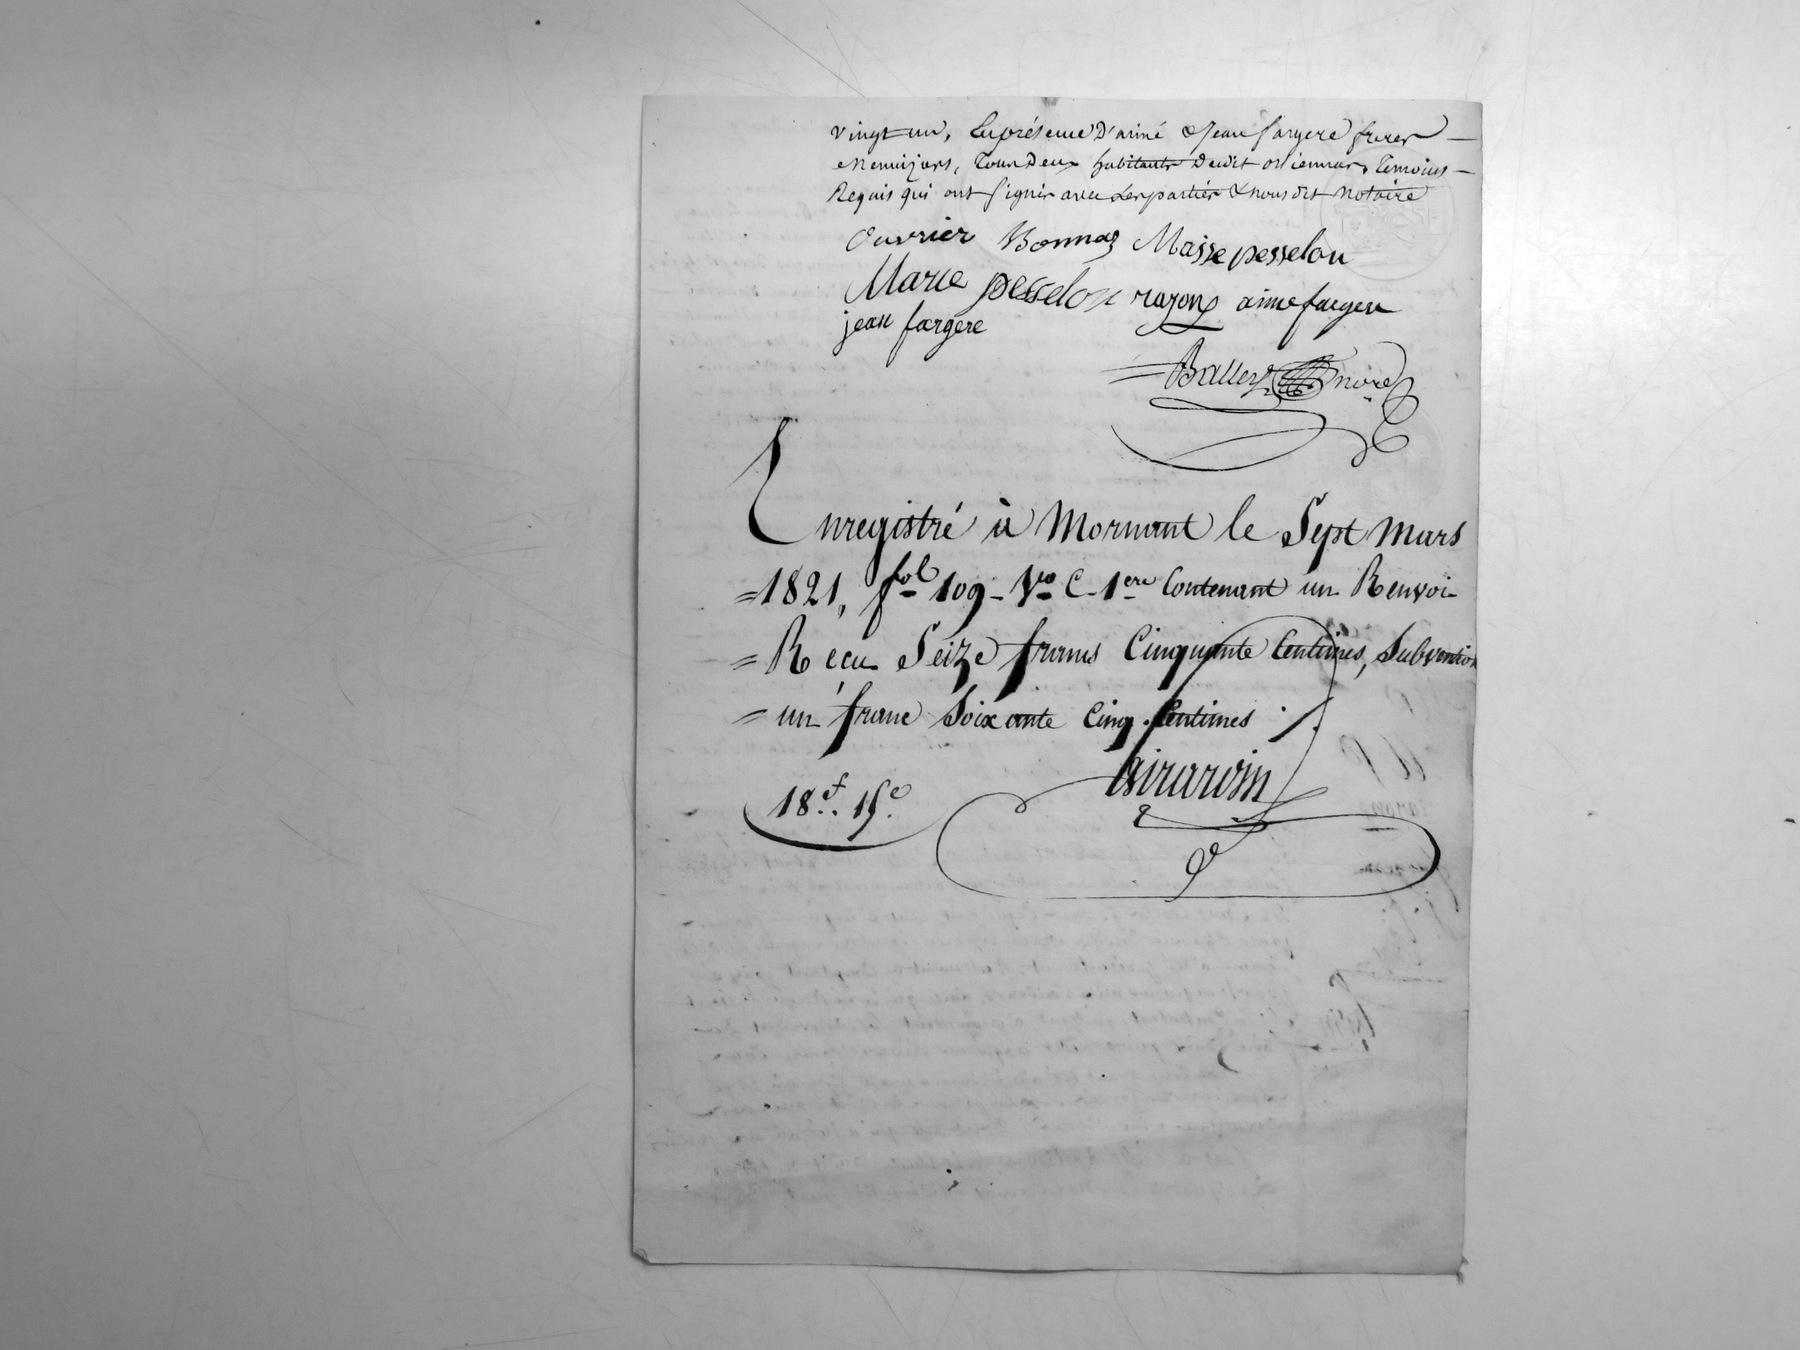 vingt un, En présence D'aimé & Jean fargere freres
menuizers, Tous Deux habitants dudit orliennas, Temoins
Requis qui ont signés avec Les parties & nous dit notaire
Ouvrier Bonnaz Maisse pesselon
Marie pesselon razon aime fargere
jean fargere
Balley nore
Enregistré à Mornant le Sept Mars
1821, fol 109 Vo C. 1ere Contenant un Renvoi
Recu Seize francs Cinquante Centimes, Subvention
un franc Soixante Cinq Centimes ./.
Girardin
18f. 15c.